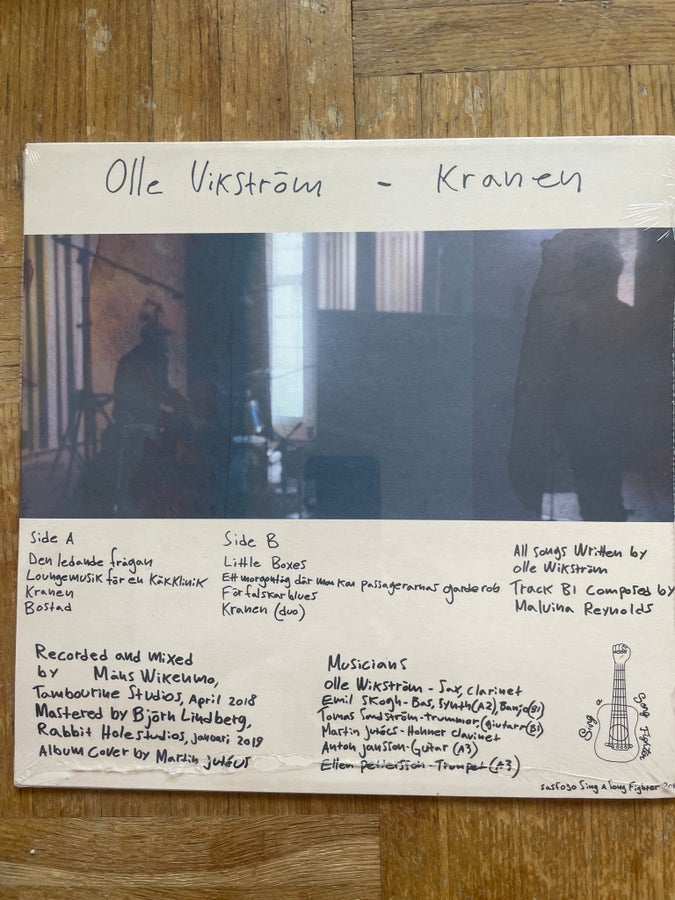 Olle Vikström - Kranen
Side A
Den ledande frågan
Loungemusik för en Käkklinik
Kranen
Bostad
Side B
Little Boxes
Ett morgontåg där man kan passagerarnas garderob
Förfalskarblues
Kranen (duo)
All songs Written by
Olle Wikström
Track B1 Composed by
Malvina Reynolds
Recorded and mixed
by Måns Wikenmo,
Tambourine Studios, April 2018
Mastered by Björn Lindberg,
Rabbit Hole studios, januari 2019
Album Cover by Martin jutéus
Musicians
Olle Wikström - Sax, clarinet
Emil Skogh - Bas, Synth (A2), Banjo (B1)
Tomas Sandström - trummor, (giutarr (B1)
Martin jutéus - Hohner clavinet
Anton jansson - Guitar (A3)
Ellen Pettersson - Trumpet (A3)
Sing a Song Fighter
sasf030 Sing A Song Fighter